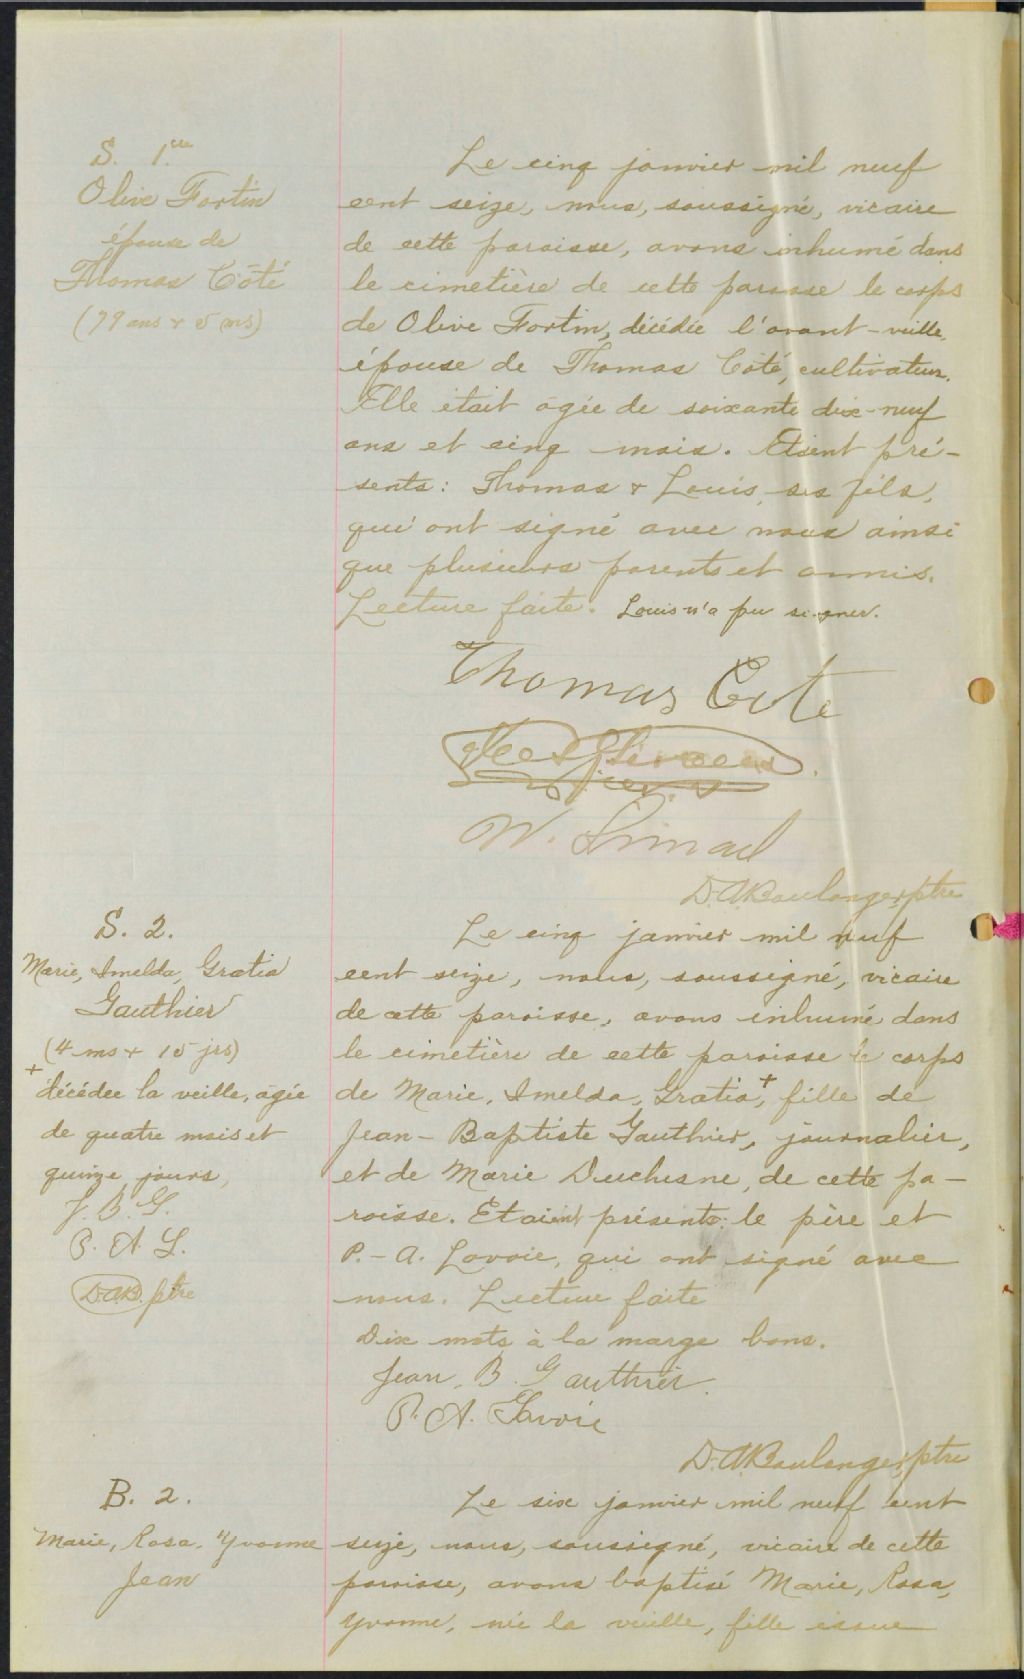 S. 1ère
Olive Fortin
épouse de
Thomas Côté
(79 ans & 5 ms)
Le cinq janvier mil neuf
cent seize, nous, soussigné, vicaire
de cette paroisse, avons inhumé dans
le cimetière de cette paroisse le corps
de Olive Fortin, décédée l'avant-veille,
épouse de Thomas Côté, cultivateur.
Elle était âgée de soixante dix-neuf
ans et cinq mois. Etaient pré-
sents: Thomas & Louis, ses fils,
qui ont signé avec nous ainsi
que plusieurs parents et amis.
Lecture faite. Louis n'a pu signer.
Thomas Cote
W. Simard
D.A. Boulanger, ptre
S. 2.
Marie, Imelda, Gratia
Gauthier
(4 ms & 15 jrs)
+ décédée la veille, agée
de quatre mois et
quinze jours,
J. B. G.
P. A. L.
D.A.B. ptre
Le cinq janvier mil neuf
cent seize, nous, soussigné, vicaire
de cette paroisse, avons inhumé dans
le cimetière de cette paroisse le corps
de Marie, Imelda, Gratia,+ fille de
Jean-Baptiste Gauthier, journalier,
et de Marie Duchesne, de cette pa-
roisse. Etaient présents: le père et
P.-A. Lavoie, qui ont signé avec
nous. Lecture faite
Dix mots à la marge bons.
Jean. B. Gauthier.
P. A. Lavoie
D.A. Boulanger, ptre
B. 2.
Marie, Rosa, Yvonne
Jean
Le six janvier mil neuf cent
seize, nous, soussigné, vicaire de cette
paroisse, avons baptisé Marie, Rosa,
Yvonne, née la veille, fille issue